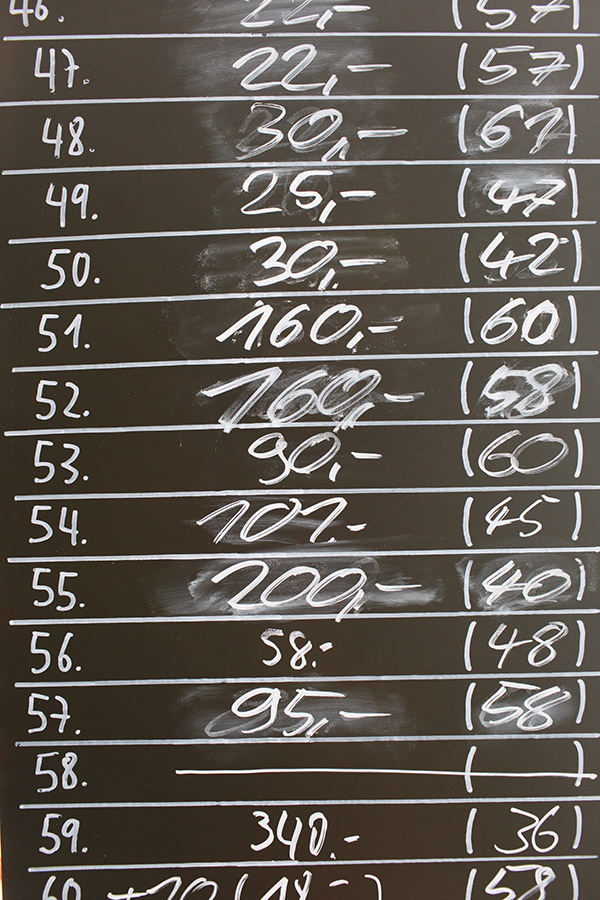 46. 22,- (57)
47. 22,- (57)
48. 30,- (67)
49. 25,- (47)
50. 30,- (42)
51. 160,- (60)
52. 160,- (58)
53. 90,- (60)
54. 101.- (45)
55. 200,- (40)
56. 58.- (48)
57. 95,- (58)
58. ( )
59. 340.- (36)
60. (58)